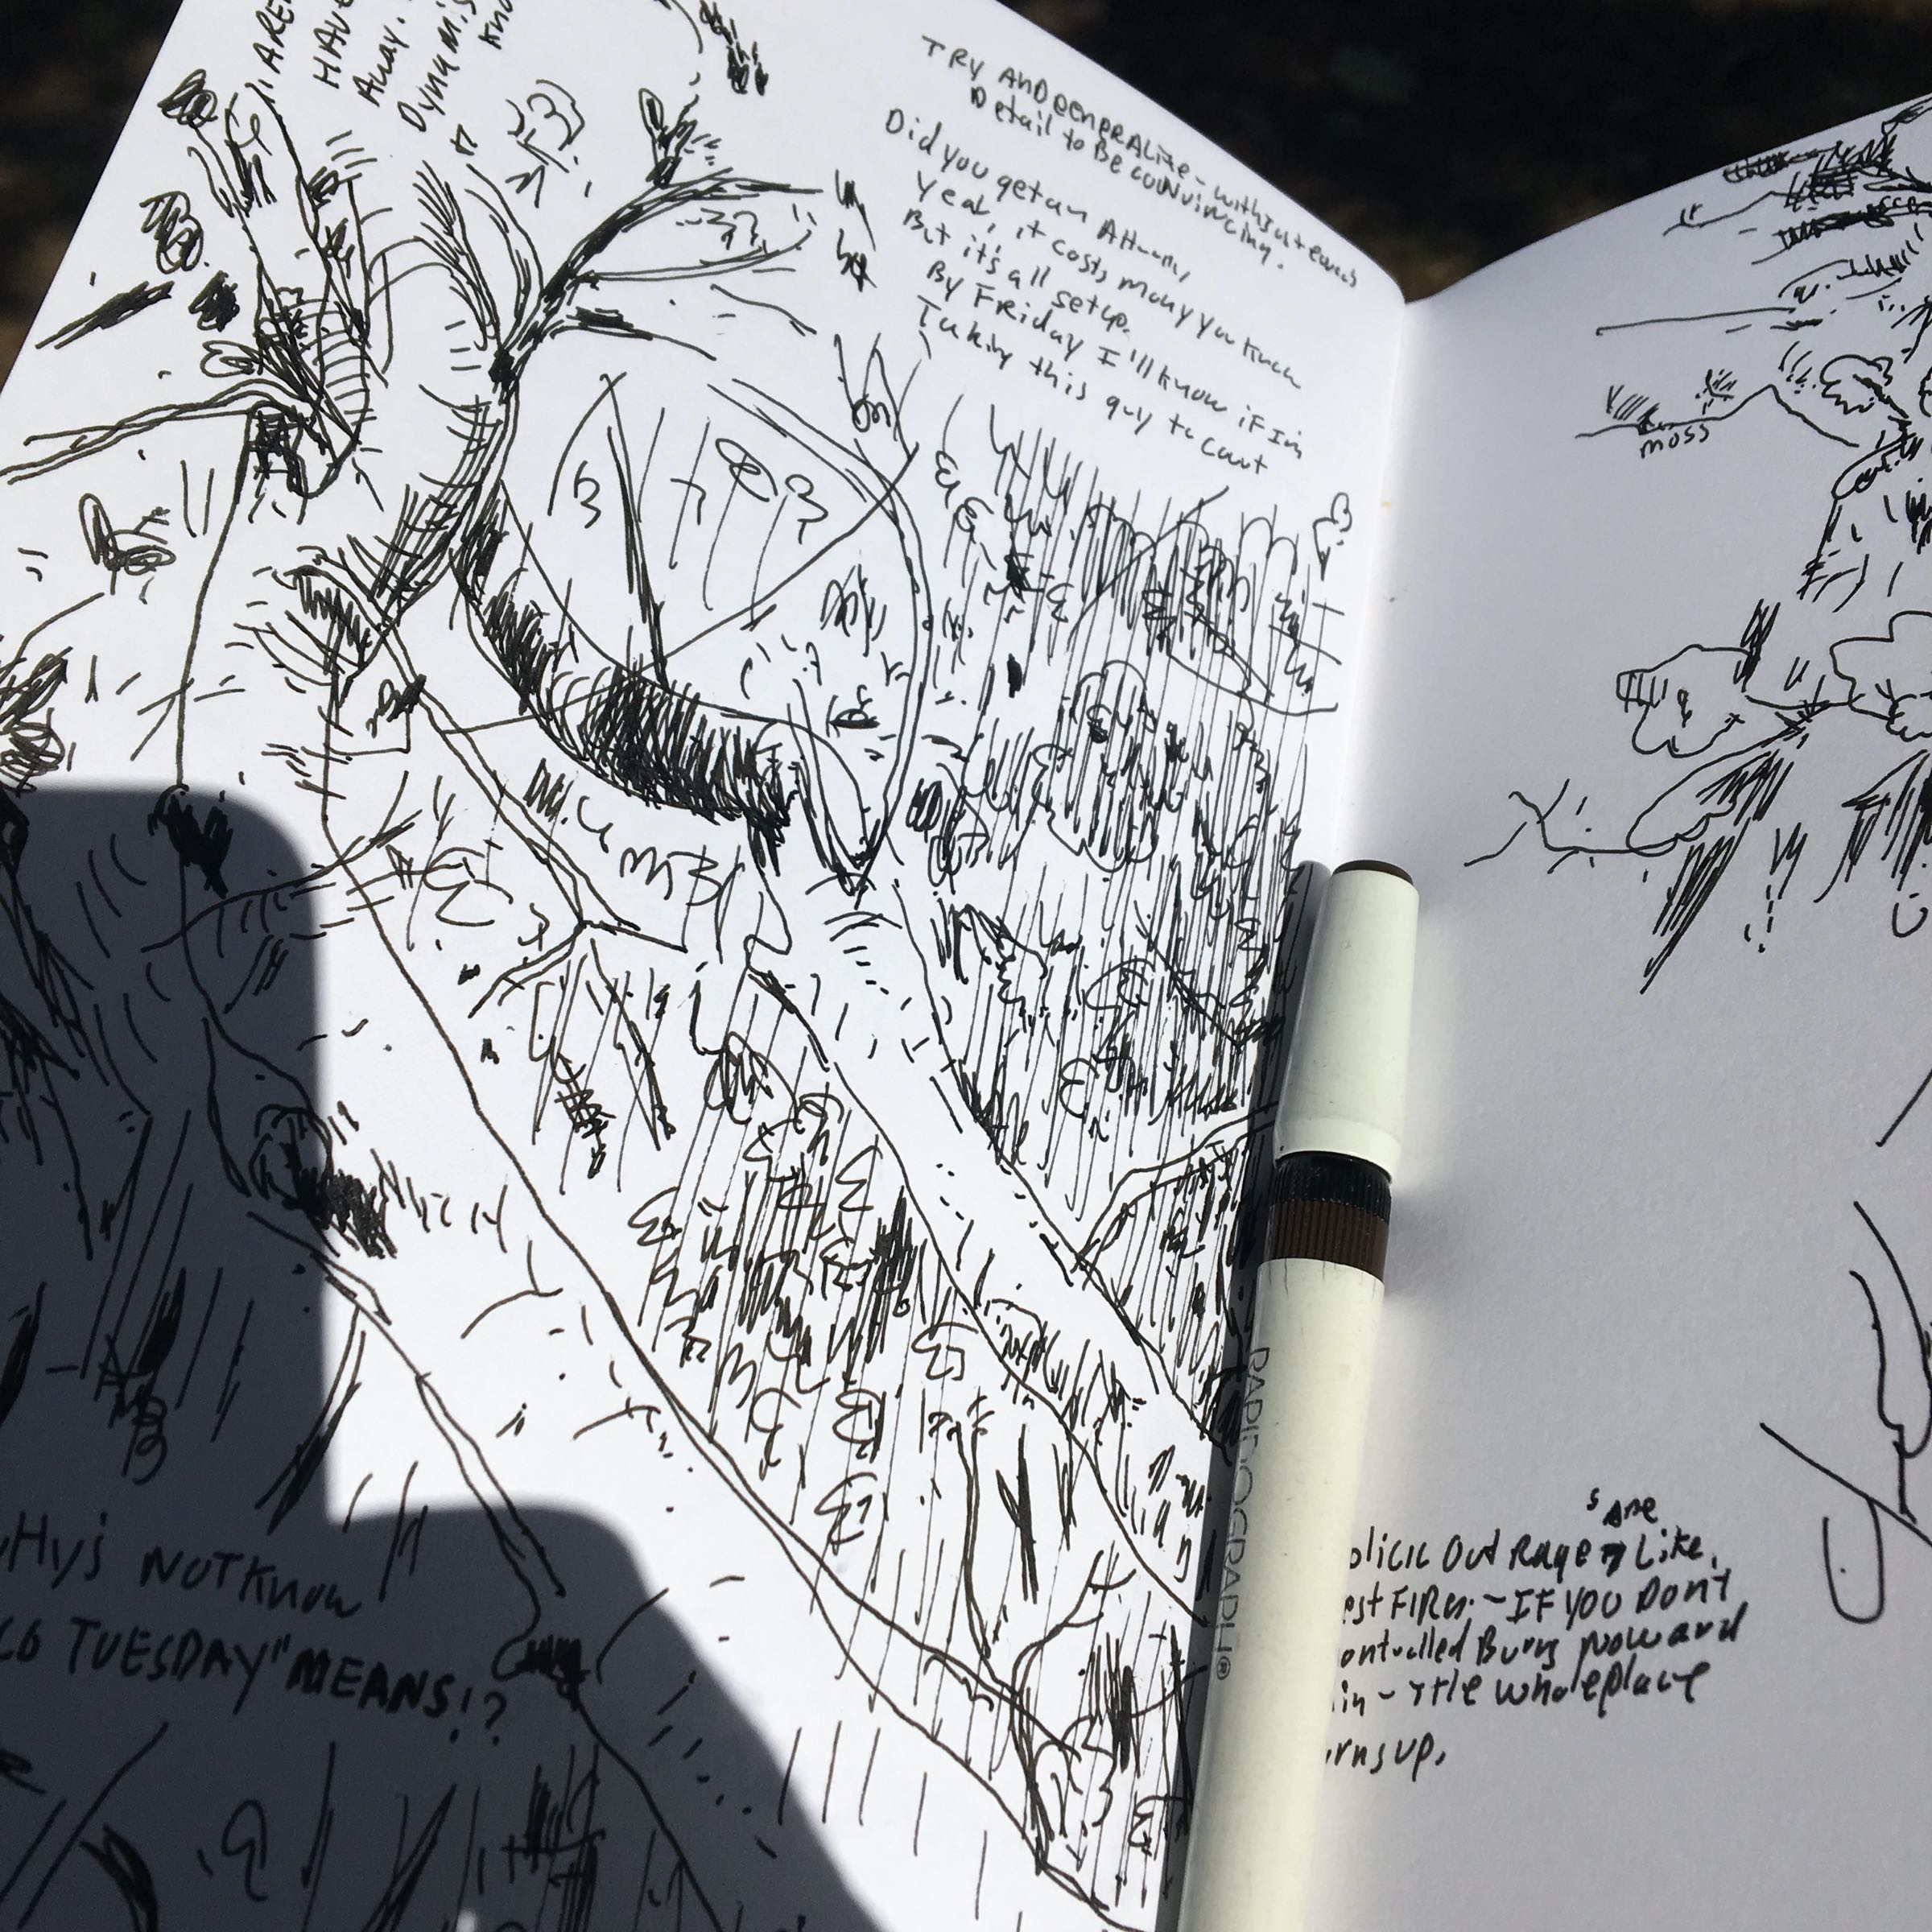 ARE
HAVE
Away.
Dynamis
Kno
TRY AND GENERALize - with
Detail to Be CONVINCING.
Did you get an Attorney
Yeah, it costs money you know
But it's all setup.
By Friday I'll know if Im
Taking this guy to court
moss
Hys NOT Know
TUESDAY" MEANS!?
RAPIDOGRAPH®
s Are
blick Out Rage Like
est FIRes - IF YOU DON'T
ontrolled Burns Now and
in - THE whole place
rns up.